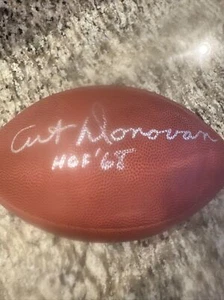 Art Donovan
HOF '68